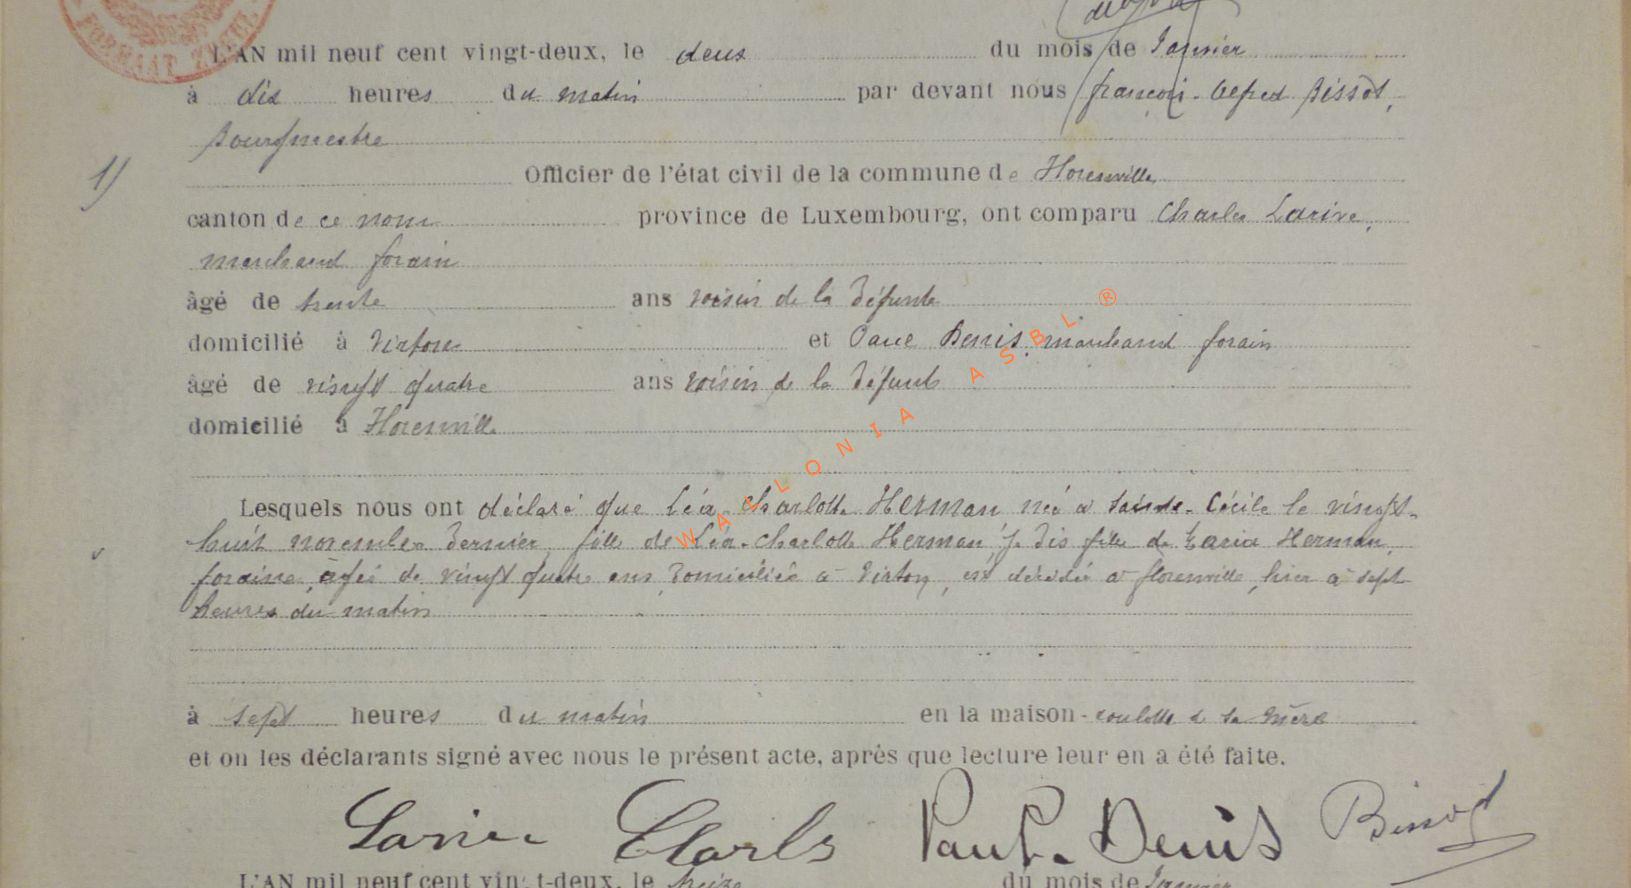 L'AN mil neuf cent vingt-deux, le deux du mois de Janvier
à dix heures du matin par devant nous françois-Alfred Bissot,
Bourgmestre
1) Officier de l'état civil de la commune de Florenville
canton de ce nom province de Luxembourg, ont comparu Charles Larive,
marchand forain
âgé de trente ans voisin de la Défunte
domicilié à Virton et Paul Denis, marchand forain
âgé de vingt quatre ans voisin de la Défunte
domicilié à Florenville
WALLONIA ASBL ®
Lesquels nous ont déclaré que Léa-Charlotte HERMAN née à Sainte-Cécile le vingt-
huit novembre Dernier, fille de Léa-Charlotte Herman, je Dis fille de Maria Herman,
foraine, âgée de vingt quatre ans Domiciliée à Virton, est décédée à florenville, hier à sept
heures du matin
à sept heures du matin en la maison-roulotte de sa mère
et on les déclarants signé avec nous le présent acte, après que lecture leur en a été faite.
Larive Charls Paul Denis Bissot
L'AN mil neuf cent vingt-deux, le treize du mois de Janvier